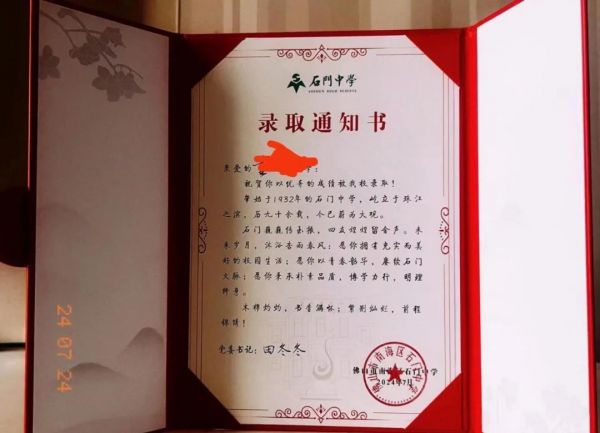 石門中学
SHIMEN HIGH SCHOOL
录取通知书
亲爱的
祝贺你以优异的成绩被我校录取!
肇始于1932年的石门中学,屹立于珠江
之滨,历九十余载,今已蔚为大观。
石门巍巍传承振,四五煌煌留金声。未
来岁月,沐浴杏雨春风:愿你拥有充实而美
好的校园生活;愿你以青春韶华,赓续石门
文脉;愿你秉承朴素品质,博学力行,明理
修身。
木棉灼灼,书香满怀;紫荆灿烂,前程
锦绣!
党委书记:田冬冬
佛山市南海区石门中学
2024年7月
佛山市南海区石门中学
24 07 24